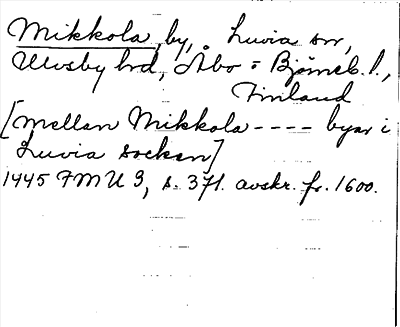 Mikkola, by, Luvia sn,
Ulvsby hd, Åbo = Björneb. l.,
Finland
[mellan Mikkola ---- byar i
Luvia socken]
1445 FMU 3, s. 37f. avskr. fr. 1600.